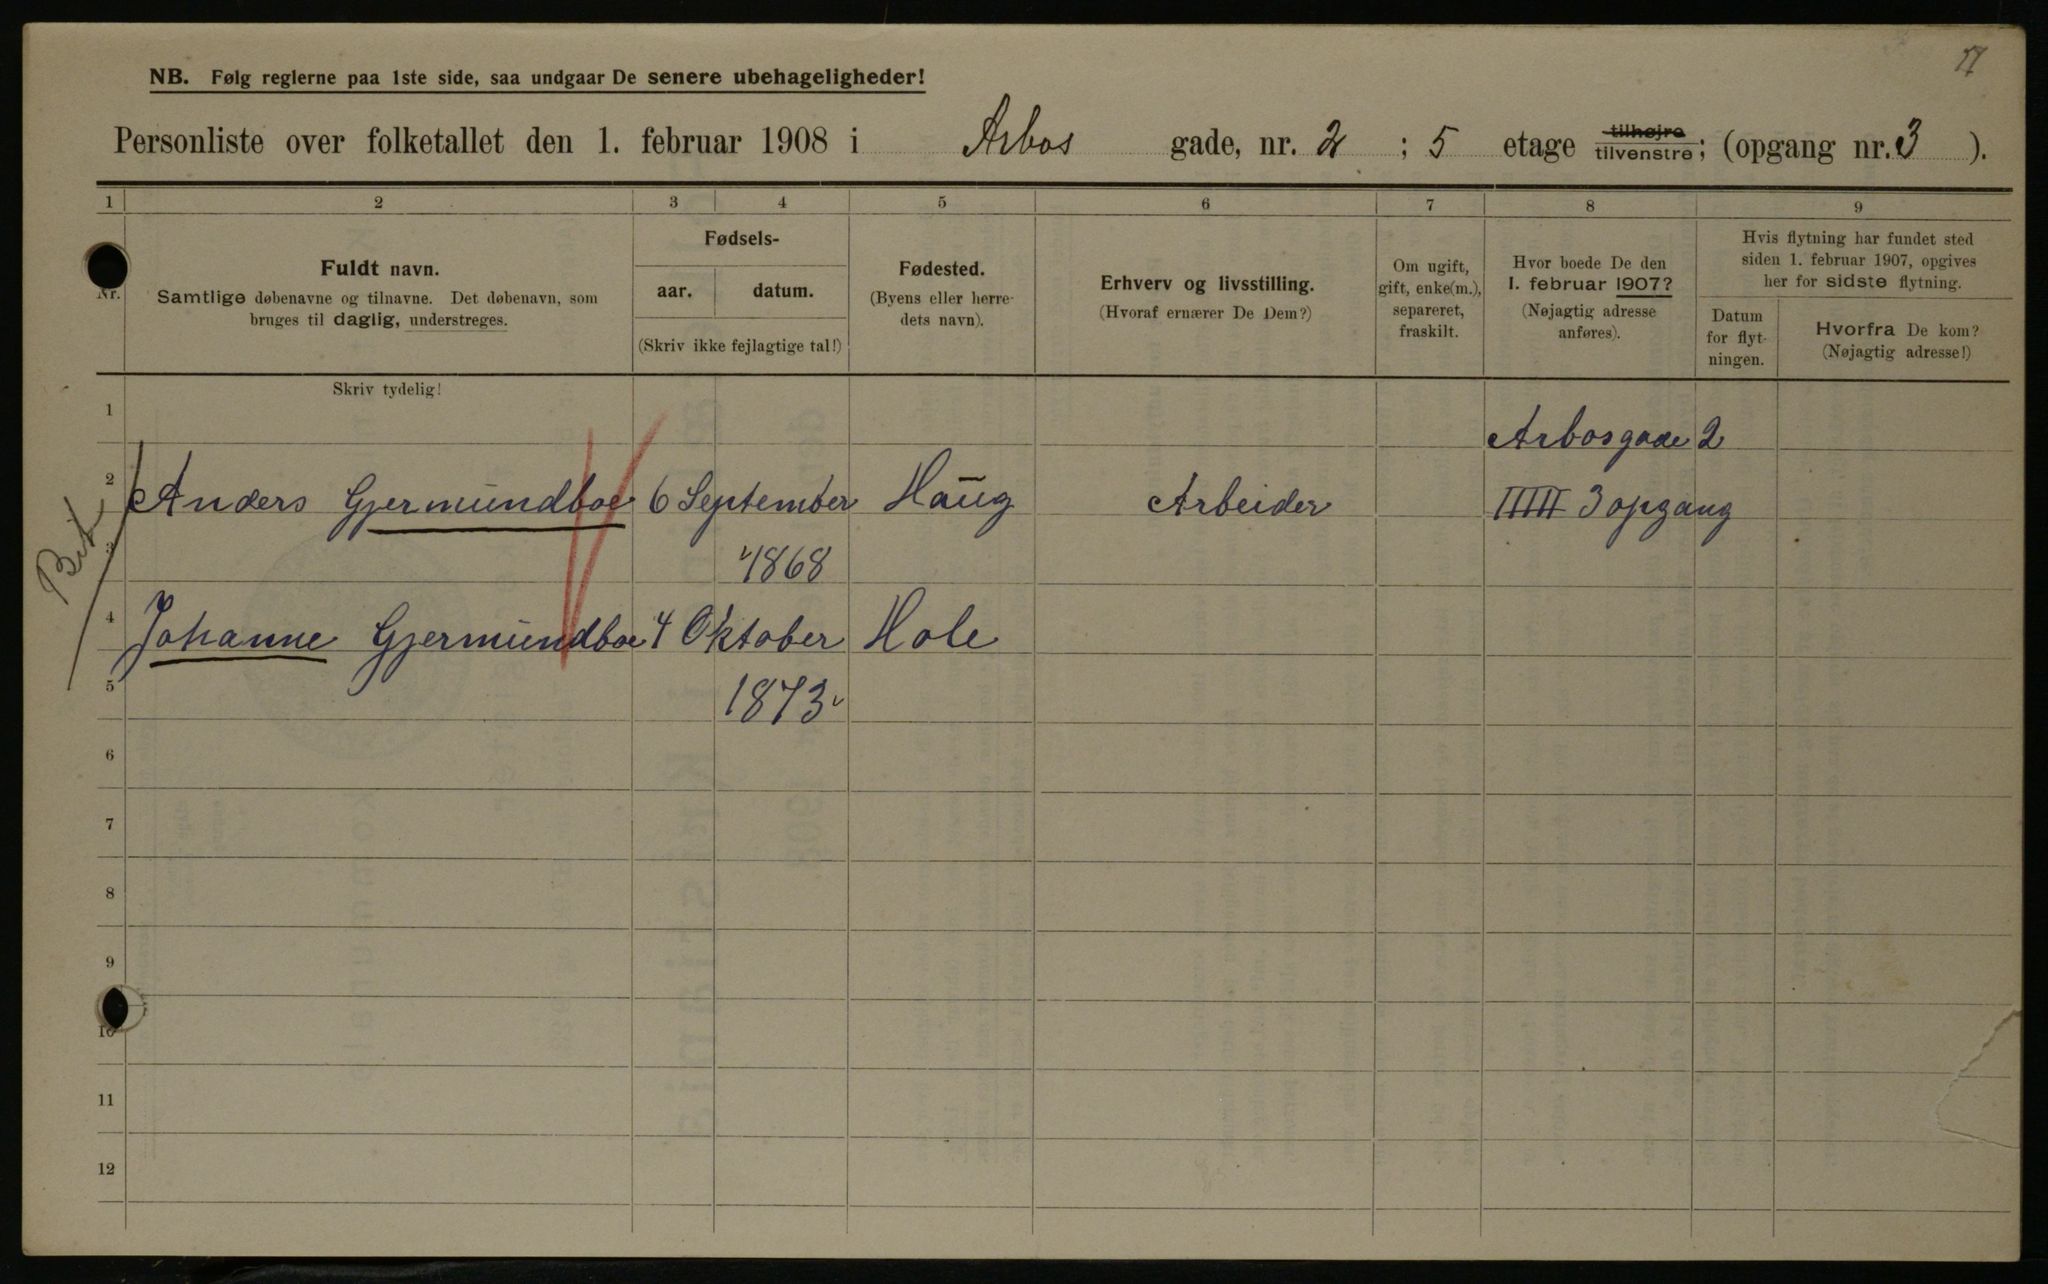 17
NB. Følg reglerne paa 1ste side, saa undgaar De senere ubehageligheder!
Personliste over folketallet den 1. februar 1908 i Arbos gade, nr. 2 ; 5 etage tilhøjre tilvenstre; (opgang nr. 3 ).
1 2 3 4 5 6 7 8 9
Nr.
Fuldt navn.
Samtlige døbenavne og tilnavne. Det døbenavn, som
bruges til daglig, understreges.
Fødsels-
aar. datum.
(Skriv ikke fejlagtige tal!)
Fødested.
(Byens eller herre-
dets navn).
Erhverv og livsstilling.
(Hvoraf ernærer De Dem?)
Om ugift,
gift, enke(m.),
separeret,
fraskilt.
Hvor boede De den
1. februar 1907?
(Nøjagtig adresse
anføres).
Hvis flytning har fundet sted
siden 1. februar 1907, opgives
her for sidste flytning.
Datum
for flyt-
ningen.
Hvorfra De kom?
(Nøjagtig adresse!)
Skriv tydelig!
1 Arbosgade 2
2 Anders Gjermundboe 6 September Haug Arbeider IIIII 3 opgang
3 1868
4 Johanne Gjermundboe 4 Oktober Hole
5 1873
6
7
8
9
10
11
12